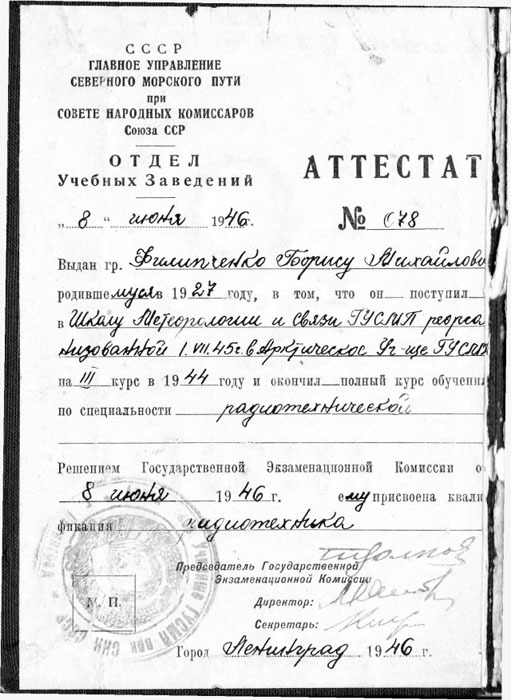 СССР
ГЛАВНОЕ УПРАВЛЕНИЕ
СЕВЕРНОГО МОРСКОГО ПУТИ
при
СОВЕТЕ НАРОДНЫХ КОМИССАРОВ
Союза ССР
ОТДЕЛ
Учебных Заведений
АТТЕСТАТ
„8“ июня 1946г.
№ 078
Выдан гр. Филипченко Борису Михайлово
родившемуся в 1927 году, в том, что он поступил
в Школу Метеорологии и Связи ГУСМП реорга
низованной 1.VII.45г. в Арктическое Уч-ще ГУСМП
на III курс в 1944 году и окончил полный курс обучени
по специальности радиотехнической
Решением Государственной Экзаменационной Комиссии о
8 июня 1946 г. ему присвоена квали
фикация радиотехника
Председатель Государственной
Экзаменационной Комиссии
М. П.
Директор:
Секретарь:
Город Ленинград 1946 г.